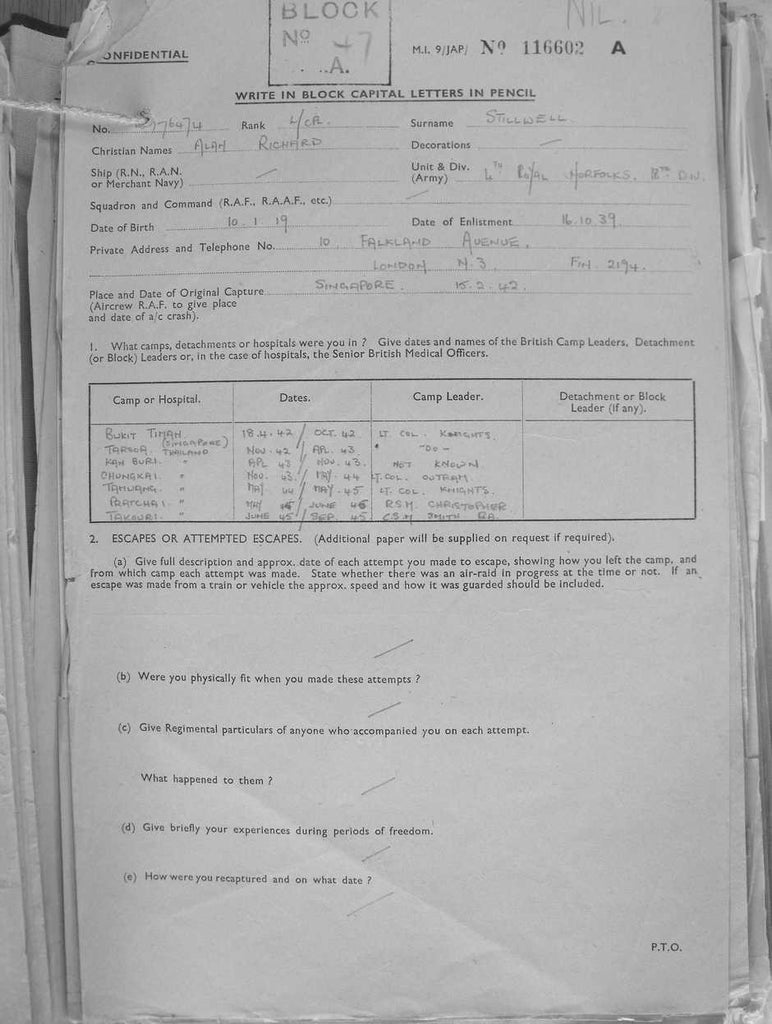 BLOCK
Nº 47
A.
NIL.
CONFIDENTIAL
M.I. 9/JAP/ Nº 116602 A
WRITE IN BLOCK CAPITAL LETTERS IN PENCIL
No. Rank L/CPL. Surname STILLWELL
Christian Names ALAN RICHARD Decorations
Ship (R.N., R.A.N. or Merchant Navy) Unit & Div. (Army) 4TH ROYAL NORFOLKS. 18TH DIV.
Squadron and Command (R.A.F., R.A.A.F., etc.)
Date of Birth 10.1.19 Date of Enlistment 16.10.39
Private Address and Telephone No. 10 FALKLAND AVENUE,
LONDON N.3. FIN. 2194.
Place and Date of Original Capture SINGAPORE. 15.2.42.
(Aircrew R.A.F. to give place
and date of a/c crash).
1. What camps, detachments or hospitals were you in ? Give dates and names of the British Camp Leaders, Detachment
(or Block) Leaders or, in the case of hospitals, the Senior British Medical Officers.
Camp or Hospital. Dates. Camp Leader. Detachment or Block Leader (if any).
BUKIT TIMAH (SINGAPORE) 18.4.42 / OCT. 42 LT. COL. KNIGHTS.
TARSOA. THAILAND NOV. 42 / APL. 43 " -DO-
KAN BURI. " APL 43 / NOV. 43. NOT KNOWN
CHUNGKAI. " NOV. 43. / MAY. 44 LT. COL. OUTRAM.
TAMUANG. " MAY. 44 / MAY. 45 LT. COL. KNIGHTS.
PRATCHAI. " MAY 45 / JUNE 45 R.S.M. CHRISTOPHER
TAKOURI. " JUNE 45 / SEP. 45 C.S.M. SMITH RA.
2. ESCAPES OR ATTEMPTED ESCAPES. (Additional paper will be supplied on request if required).
(a) Give full description and approx. date of each attempt you made to escape, showing how you left the camp, and
from which camp each attempt was made. State whether there was an air-raid in progress at the time or not. If an
escape was made from a train or vehicle the approx. speed and how it was guarded should be included.
(b) Were you physically fit when you made these attempts ?
(c) Give Regimental particulars of anyone who accompanied you on each attempt.
What happened to them ?
(d) Give briefly your experiences during periods of freedom.
(e) How were you recaptured and on what date ?
P.T.O.